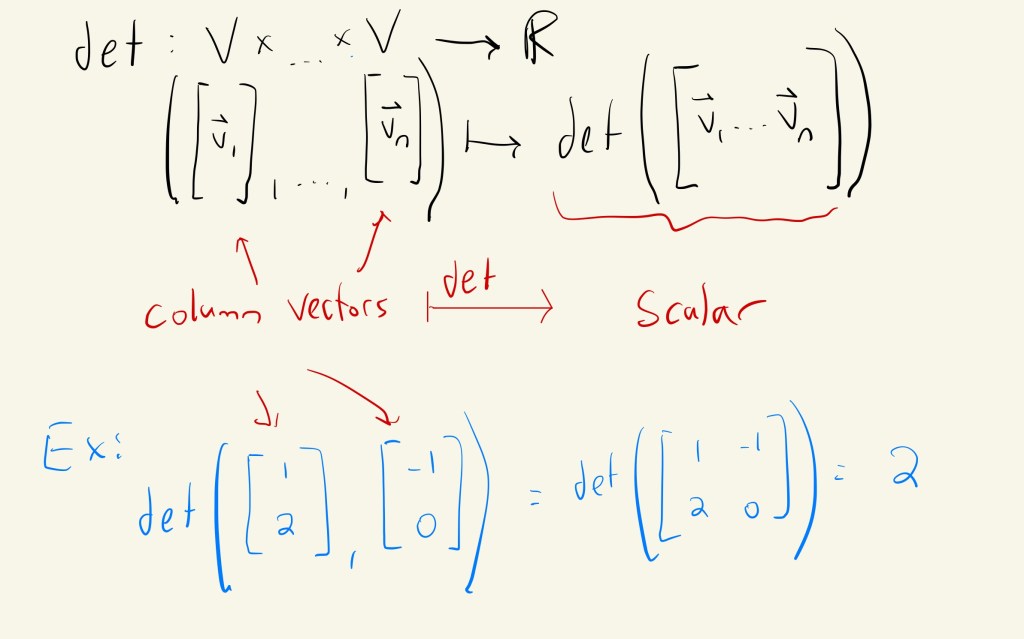 det : V × ... × V → ℝ
([v⃗₁], ..., [v⃗ₙ]) ↦ det([v⃗₁ ... v⃗ₙ])
column vectors ↦ det Scalar
Ex: det([1 2], [-1 0]) = det([1 -1 2 0]) = 2